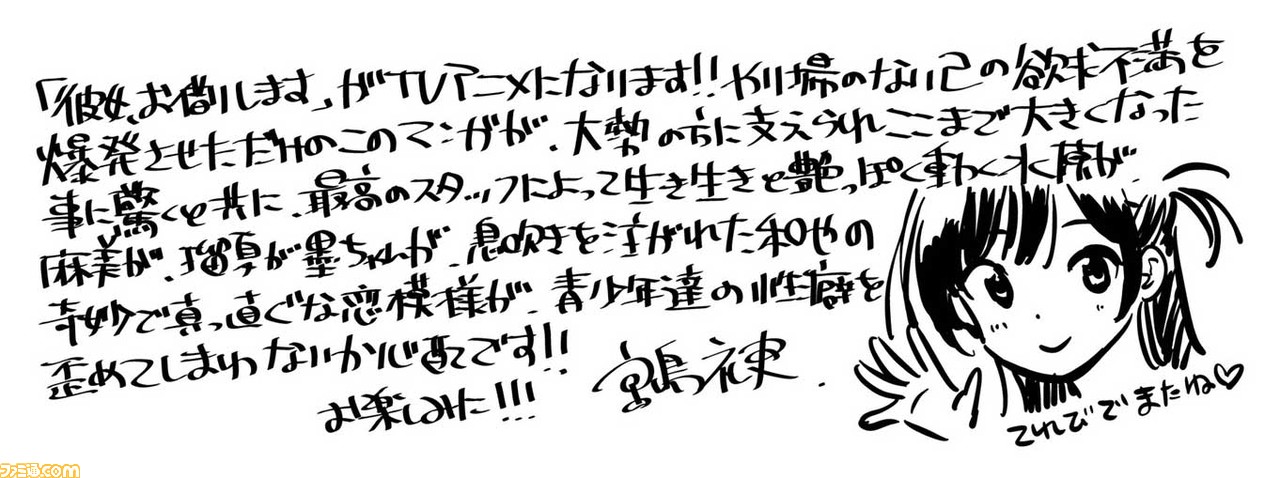 「彼女、お借りします」がTVアニメになります!!やり場のない己の欲求不満を
爆発させただけのこのマンガが、大勢の方に支えられここまで大きくなった
事に驚くと共に、最高のスタッフによって生き生きと艶っぽく動く水原が、
麻美が、瑠夏が墨ちゃんが、息吹きを注がれた和也の
奇妙で真っ直ぐな恋模様が、青少年達の性癖を
歪めてしまわないか心配です!!
お楽しみに!!!
宮島礼吏.
てれびでまたね♡
ファミ通.com